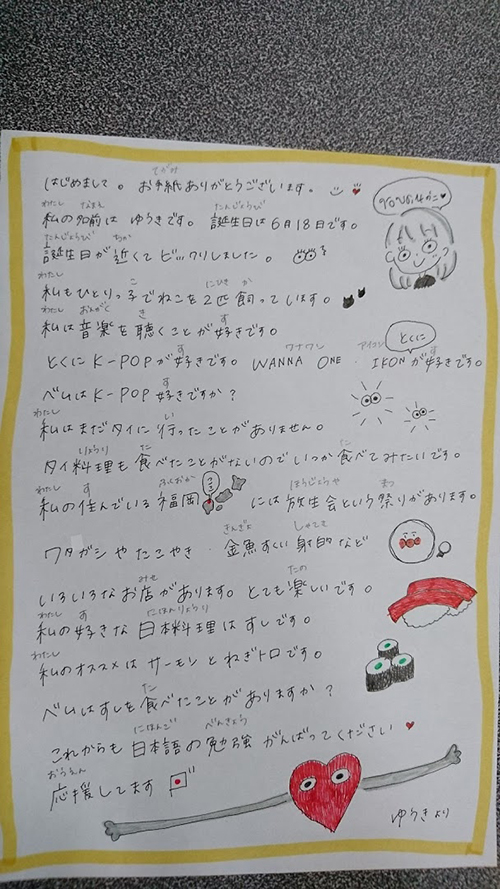 はじめまして。 お手紙ありがとうございます。
私の名前は ゆうきです。 誕生日は6月18日です。
誕生日が近くてビックリしました。
私もひとりっ子でねこを2匹飼ってします。
私は音楽を聴くことが好きです。
とくにK-POPが好きです。 WANNA ONE · IKONが好きです。
ベムはK-POP好きですか?
私はまだタイに行ったことがありません。
タイ料理も食べたことがないのでいつか食べてみたいです。
私の住んでいる福岡には放生会という祭りがあります。
ワタガシやたこやき · 金魚すくい射的など
いろいろなお店があります。とても楽しいです。
私の好きな日本料理はすしです。
私のオススメはサーモンとねぎトロです。
ベムはすしを食べたことがありますか?
これからも日本語の勉強がんばってください
応援してます
ゆうきより